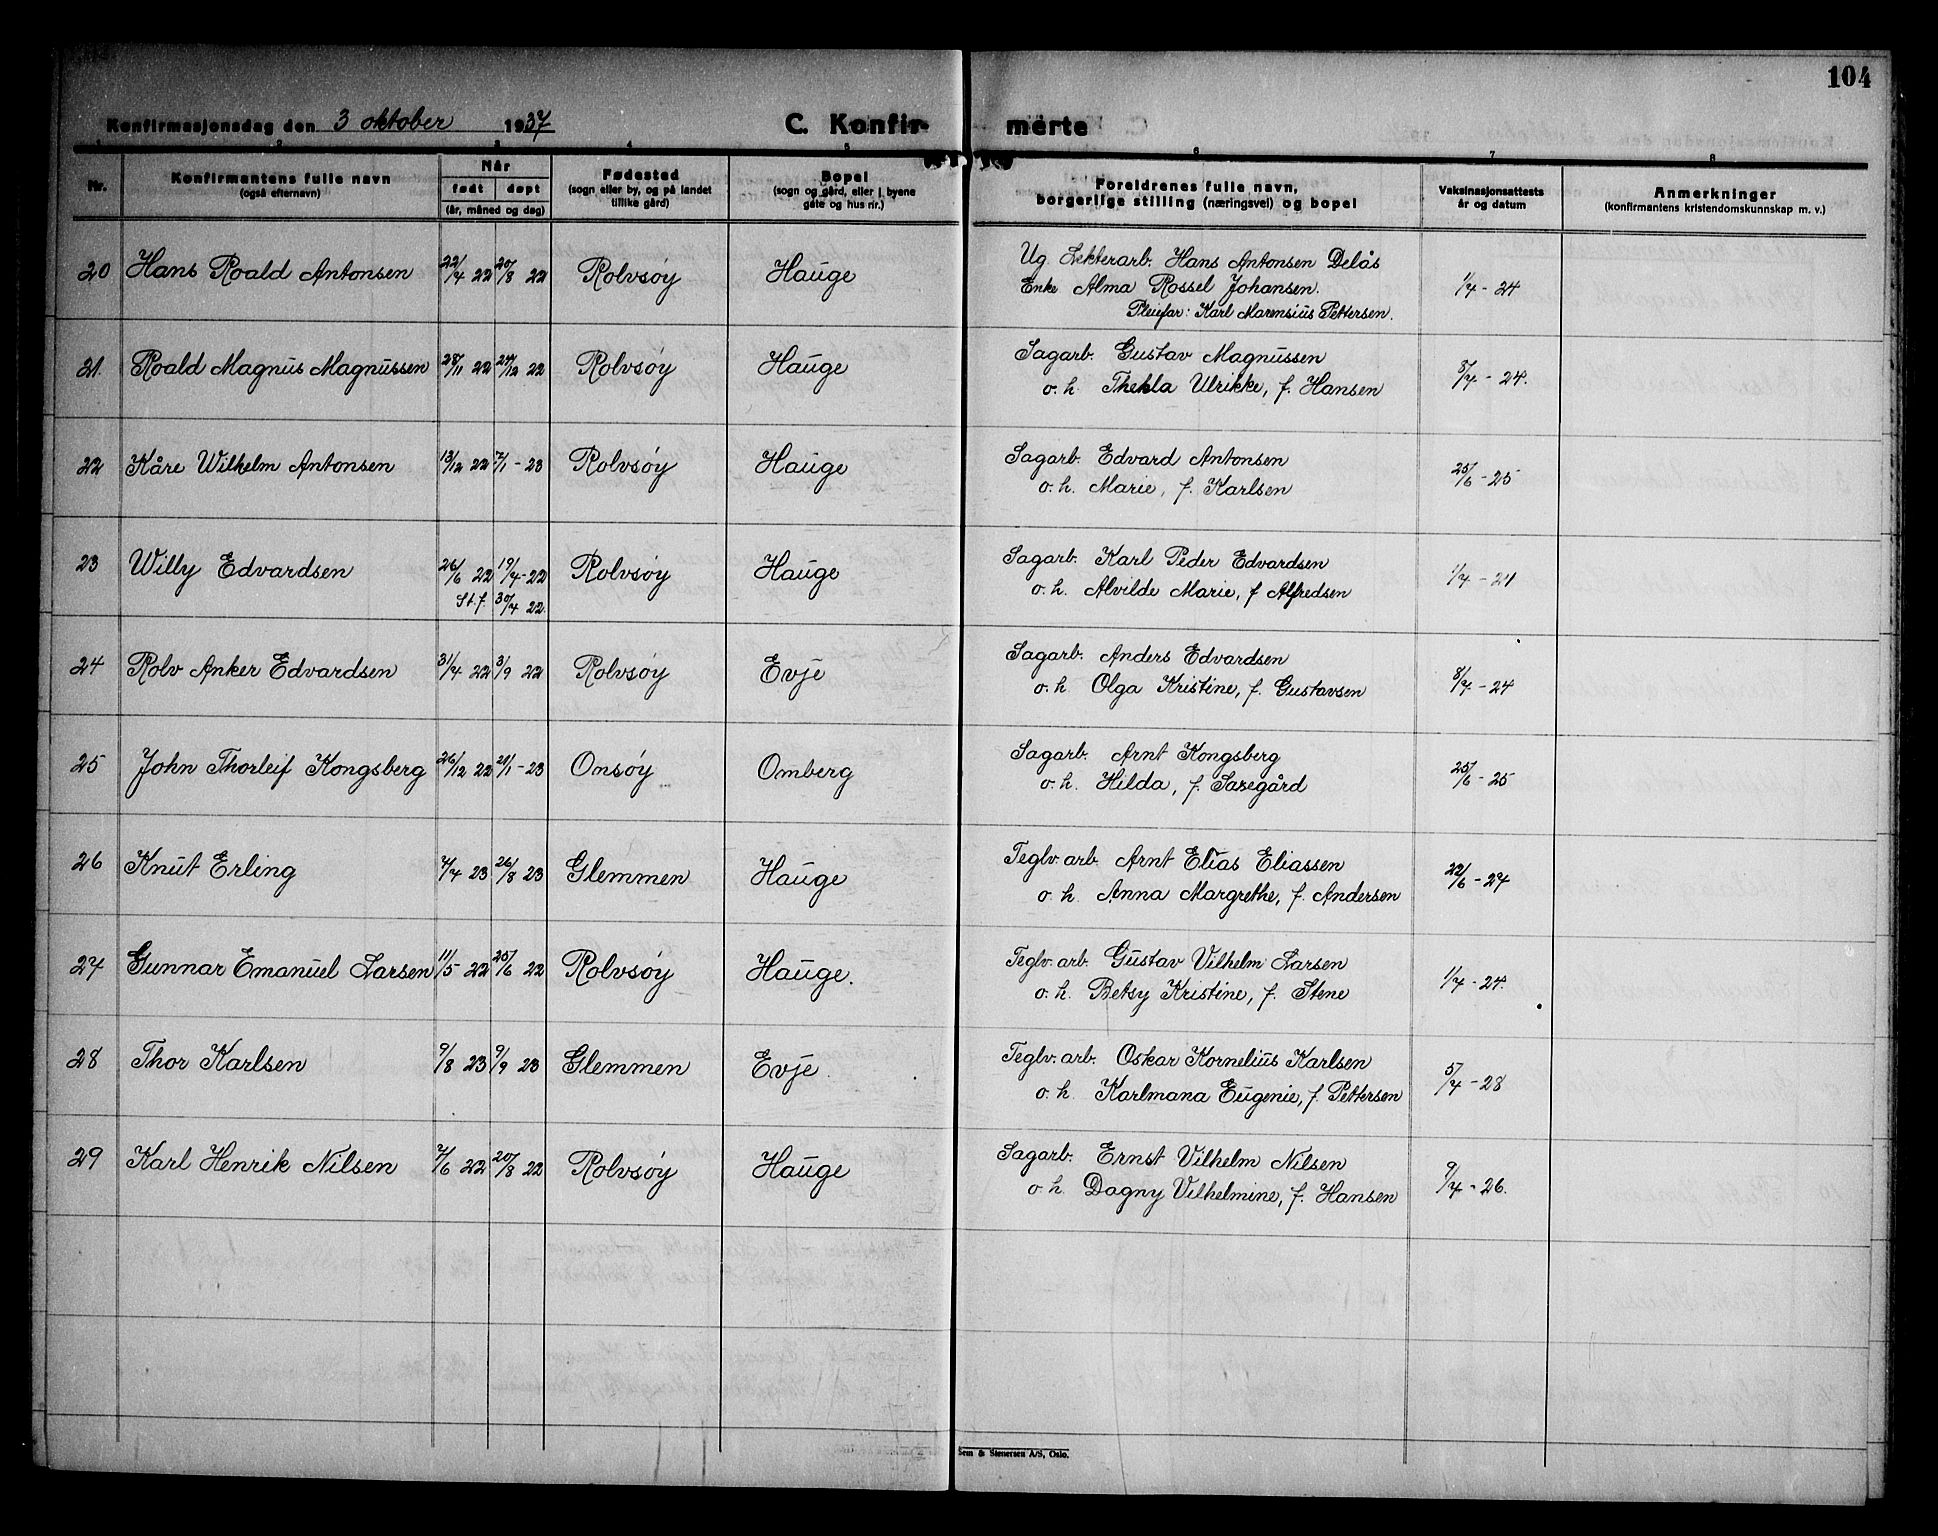 104
Konfirmasjonsdag den 3 oktober 1937 C. Konfir- merte
1 2 3 4 5 6 7 8
Nr. Konfirmantens fulle navn (også efternavn) Når født døpt (år, måned og dag) Fødested (sogn eller by, og på landet tillike gård) Bopel (sogn og gård, eller i byene gate og hus nr.) Foreldrenes fulle navn, borgerlige stilling (næringsvei) og bopel Vaksinasjonsattests år og datum Anmerkninger (konfirmantens kristendomskunnskap m. v.)
20 Hans Roald Antonsen 22/4 22 20/8 22 Rolvsøy Hauge Ug Hans Antonsen Delås 1/7 - 24
Enke Alma Rossel Johansen.
Pleiefar: Karl Marensius Pettersen.
21. Roald Magnus Magnussen 28/11 22 24/12 22 Rolvsøy Hauge Sagarb. Gustav Magnussen 8/7 - 24.
o. h Thekla Ulrikke, f. Hansen
22 Kåre Wilhelm Antonsen 13/12 22 7/1 - 23 Rolvsøy Hauge Sagarb. Edvard Antonsen 25/6 - 25
o. h. Marie, f. Karlsen
23 Willy Edvardsen 26/6 22 19/7 - 22 Rolvsøy Hauge Sagarb. Karl Peder Edvardsen 1/7 - 24
St.f. 30/7 22. o. h. Alvilde Marie, f Alfredsen
24 Rolv Anker Edvardsen 31/7 22 3/9 22 Rolvsøy Evje Sagarb. Anders Edvardsen 8/7 - 24
o. h Olga Kristine, f. Gustavsen
25 John Thorleif Kongsberg 26/12 22 21/1 - 23 Onsøy Omberg Sagarb. Arnt Kongsberg 25/6 - 25
o. h. Hilda, f. Saxegård
26 Knut Erling 7/7 23 26/8 23 Glemmen Hauge Teglv. arb. Arnt Elias Eliassen 22/6 - 27
o. h. Anna Margrethe, f. Andersen
27 Gunnar Emanuel Larsen 11/5 22 25/6 22 Rolvsøy Hauge. Teglv. arb. Gustav Vilhelm Larsen 1/7 - 24.
o. h. Betsy Kristine, f. Stene
28 Thor Karlsen 9/8 23 9/9 23 Glemmen Evje Teglv. arb. Oskar Kornelius Karlsen 5/7 - 28
o. h. Karlmana Eugenie, f. Pettersen
29 Karl Henrik Nilsen 7/6 22 20/8 22 Rolvsøy Hauge Sagarb. Ernst Vilhelm Nilsen 9/7 - 26.
o h. Dagny Vilhelmine, f. Hansen
Sem & Stenersen A/S, Oslo.